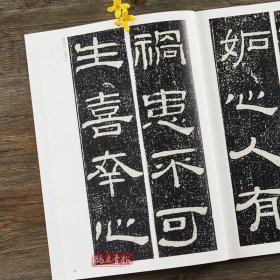 妬心人有
禍患不可
生喜幸心